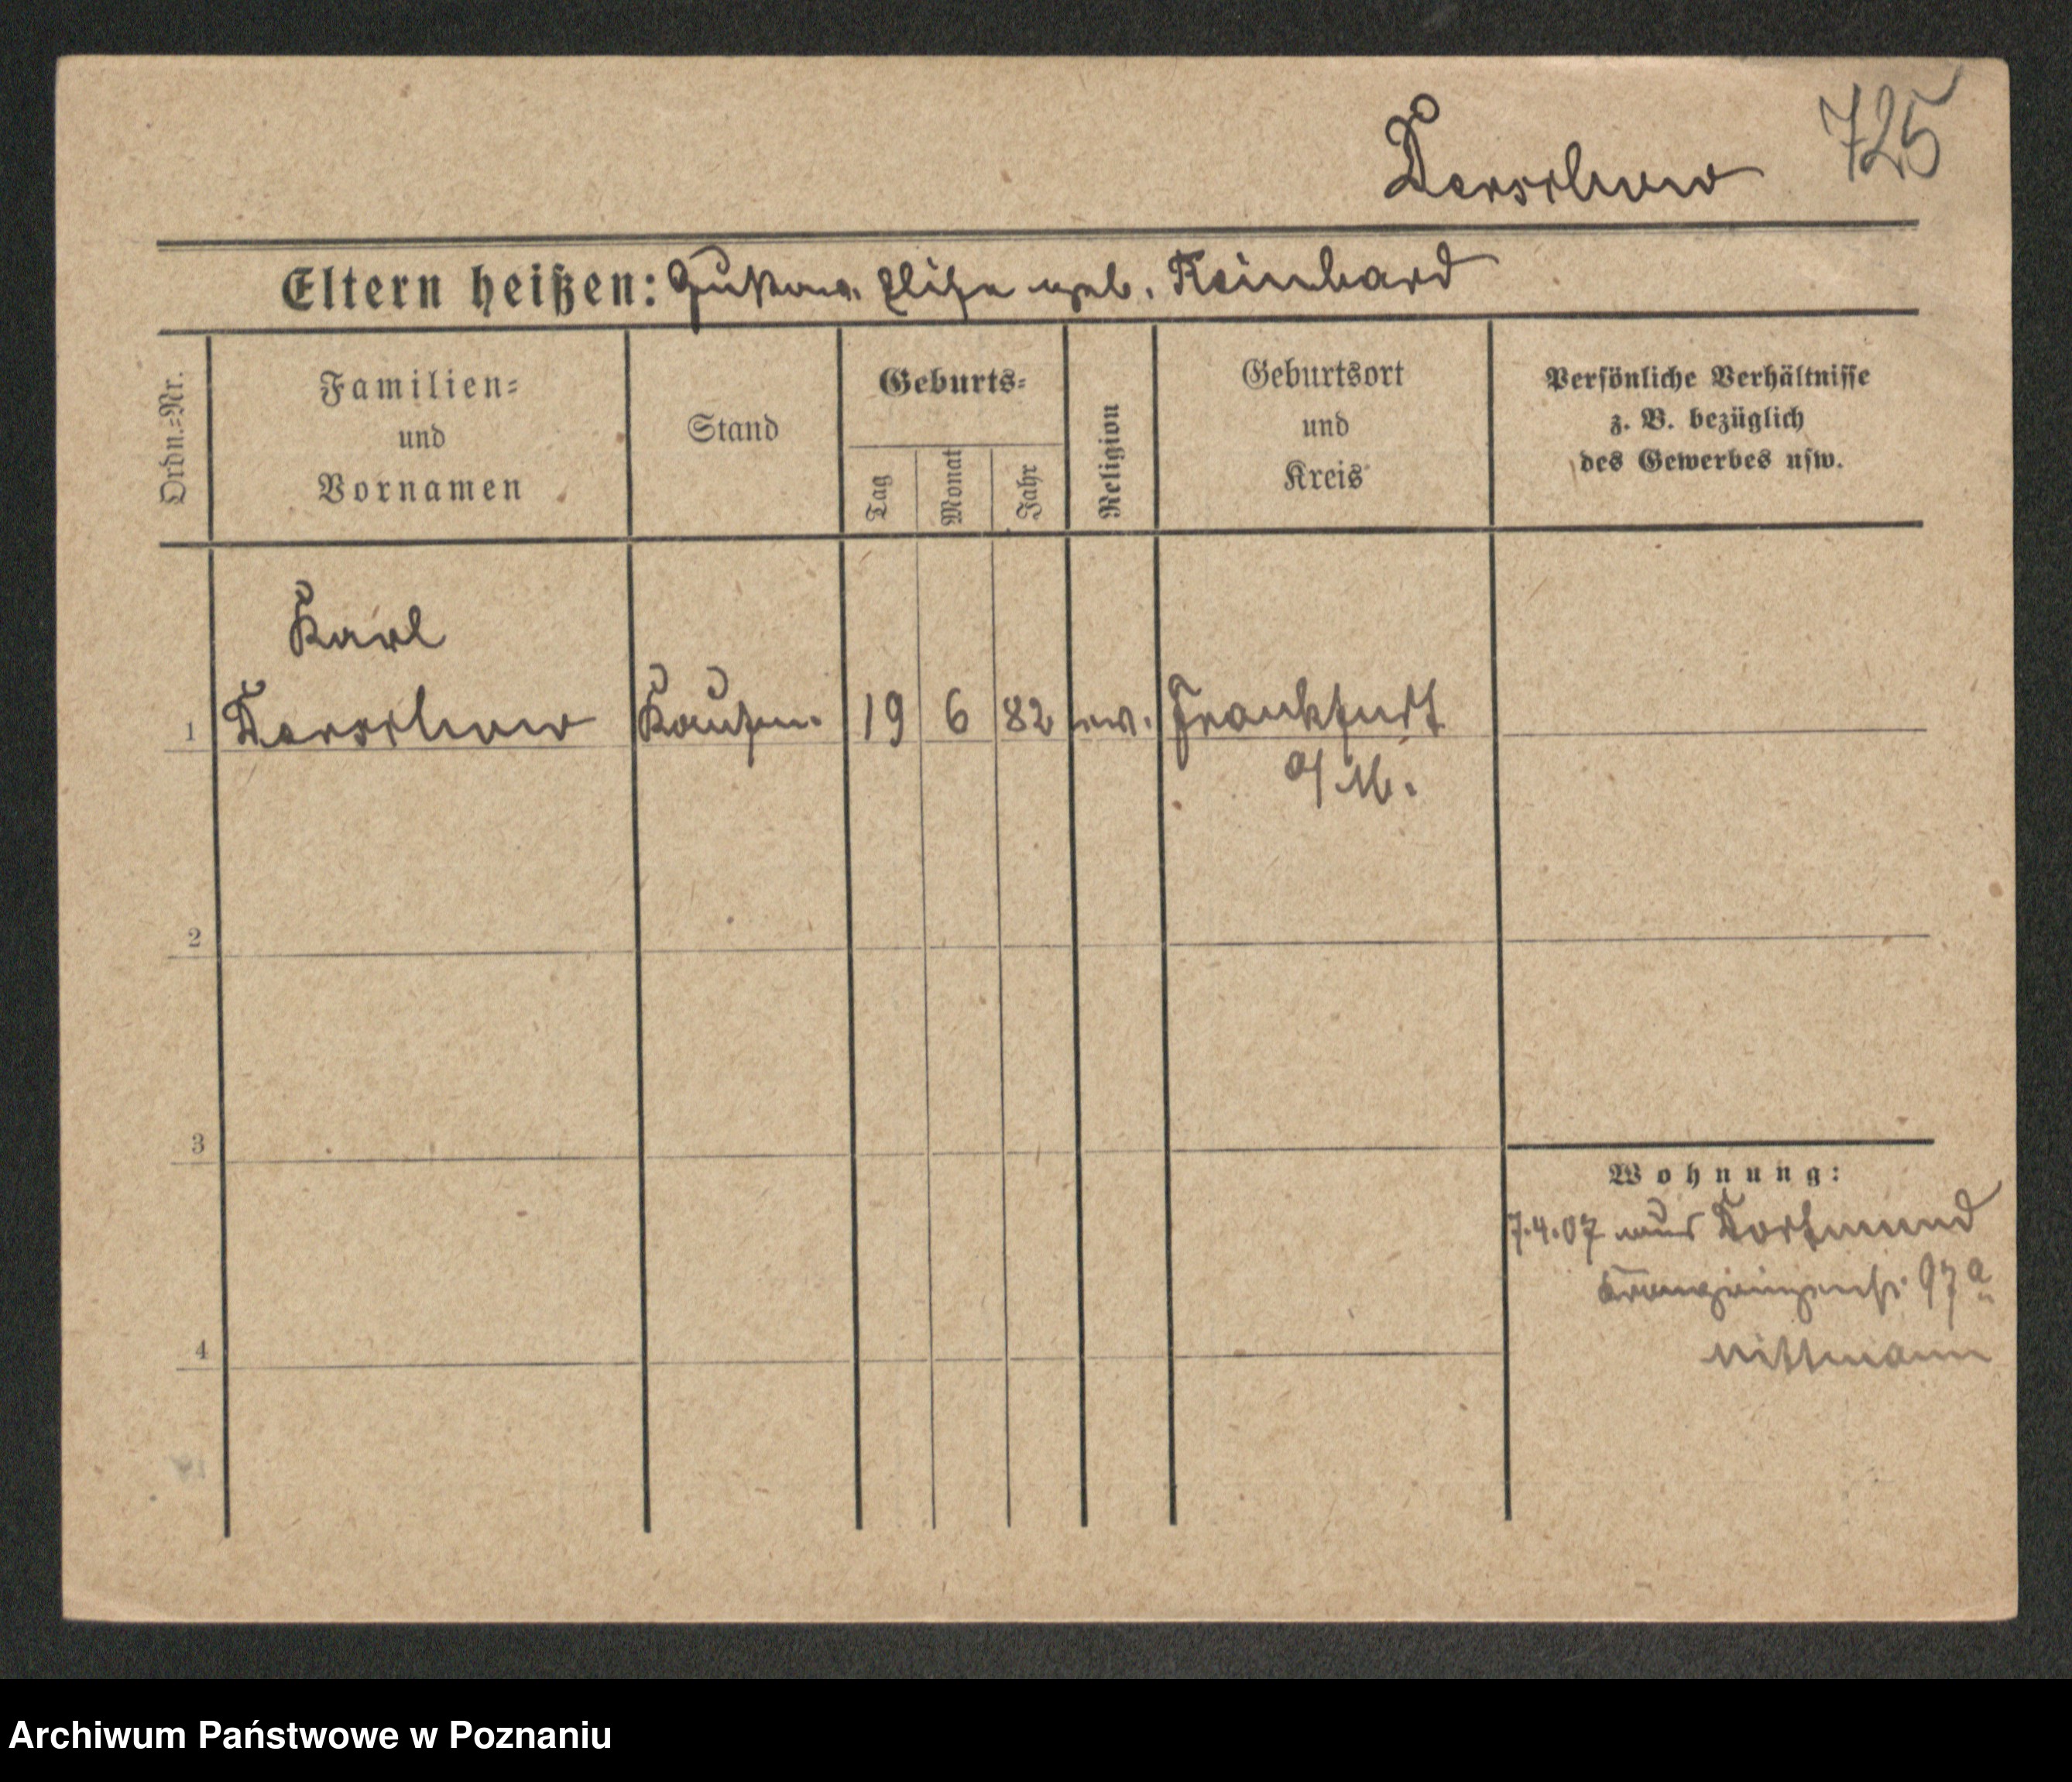 725
Derschow
Eltern heißen: Gustav u. Elise geb. Reinhard
Ordn.=Nr.
Familien=
und
Vornamen
Stand
Geburts=
Tag
Monat
Jahr
Religion
Geburtsort
und
Kreis
Persönliche Verhältnisse
z. B. bezüglich
des Gewerbes usw.
Karl
1 Derschow Kaufm. 19 6 82 ev. Frankfurt
a/M.
2
3
4
Wohnung:
7.4.07 aus Dortmund
Kronprinzenstr. 97 a
Wittmann